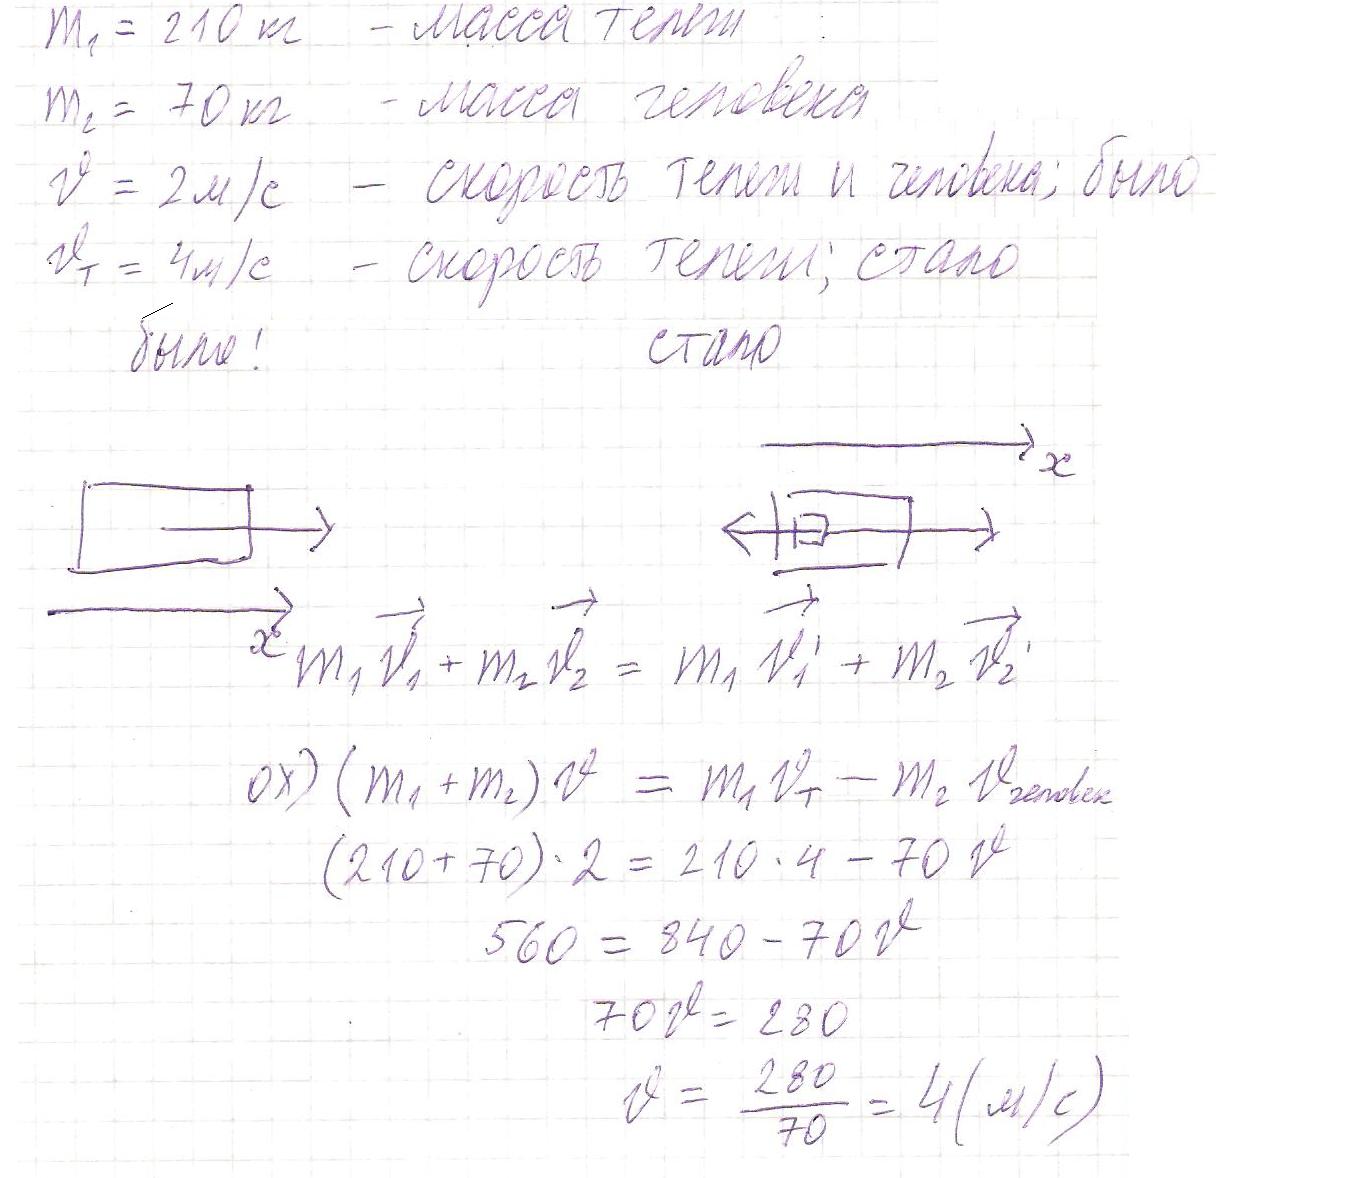 m₁ = 210 кг - масса тележ
m₂ = 70 кг - масса человека
v = 2 м/с - скорость тележ и человека; было
vт = 4 м/с - скорость тележ; стало
было! стало
x
x
m₁v⃗₁ + m₂v⃗₂ = m₁v⃗₁' + m₂v⃗₂'
ox) (m₁ + m₂) v = m₁vт - m₂vчеловек
(210 + 70) · 2 = 210 · 4 - 70 v
560 = 840 - 70 v
70 v = 280
v = 280/70 = 4 (м/с)